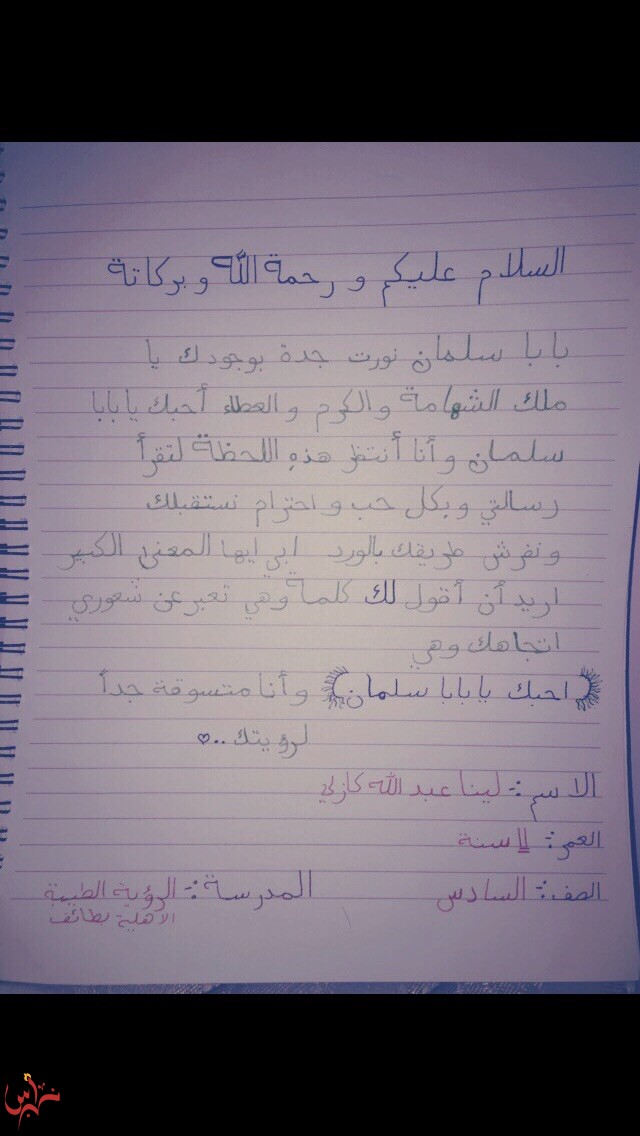 السلام عليكم و رحمة الله وبركاتة
بابا سلمان نورت جدة بوجودك يا
ملك الشهامة والكرم والعطاء أحبك يابابا
سلمان وأنا أنتظر هذه اللحظة لتقرأ
رسالتي وبكل حب واحترام نستقبلك
ونفرش طريقك بالورد ابي ايها المعنى الكبير
اريد أن أقول لك كلمة وهي تعبر عن شعوري
اتجاهك وهي
(احبك يابابا سلمان) وأنا متسوقة جداً
لرؤيتك..♡
الاسم:- لينا عبدالله كازلي
العمر:- 11 سنة
الصف:- السادس المدرسة:- الرؤية الطيبة
الأهلية بطائف